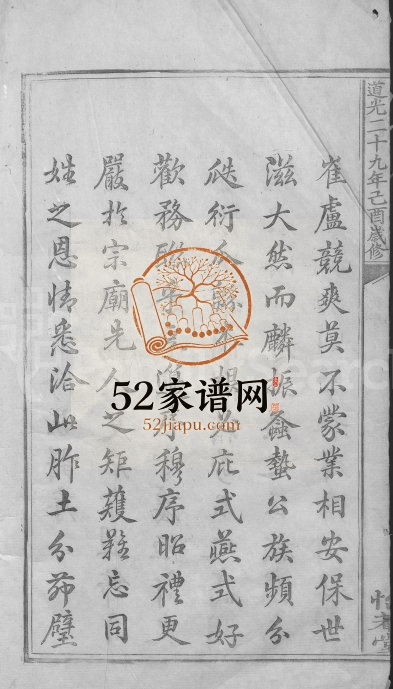 道光二十九年己酉歲修
崔盧競爽莫不蒙業相安保世
滋大然而麟振螽蟄公族頻分
瓞衍瓜緜本根庇式燕式好
歡務聯穆序昭禮更
嚴於宗廟先人之矩矱難忘同
姓之恩情悉洽此胙土分茆璧
52家谱网
52jiapu.com